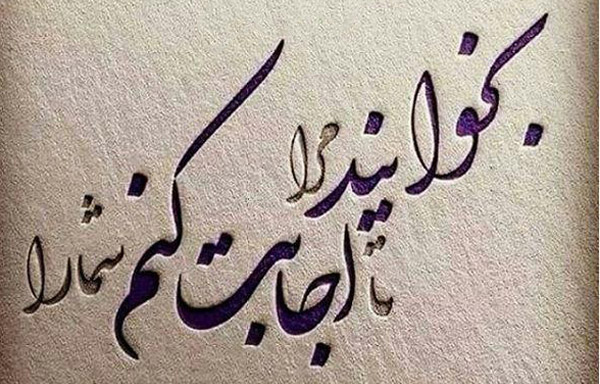 بخوانید مرا
تا اجابت کنم شما را